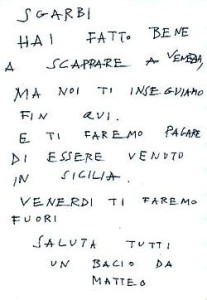 SGARBI
HAI FATTO BENE
A SCAPPARE A VENEZIA,
MA NOI TI INSEGUIAMO
FIN QUI.
E TI FAREMO PAGARE
DI ESSERE VENUTO
IN SICILIA.
VENERDI TI FAREMO
FUORI
SALUTA TUTTI
UN BACIO DA
MATTEO